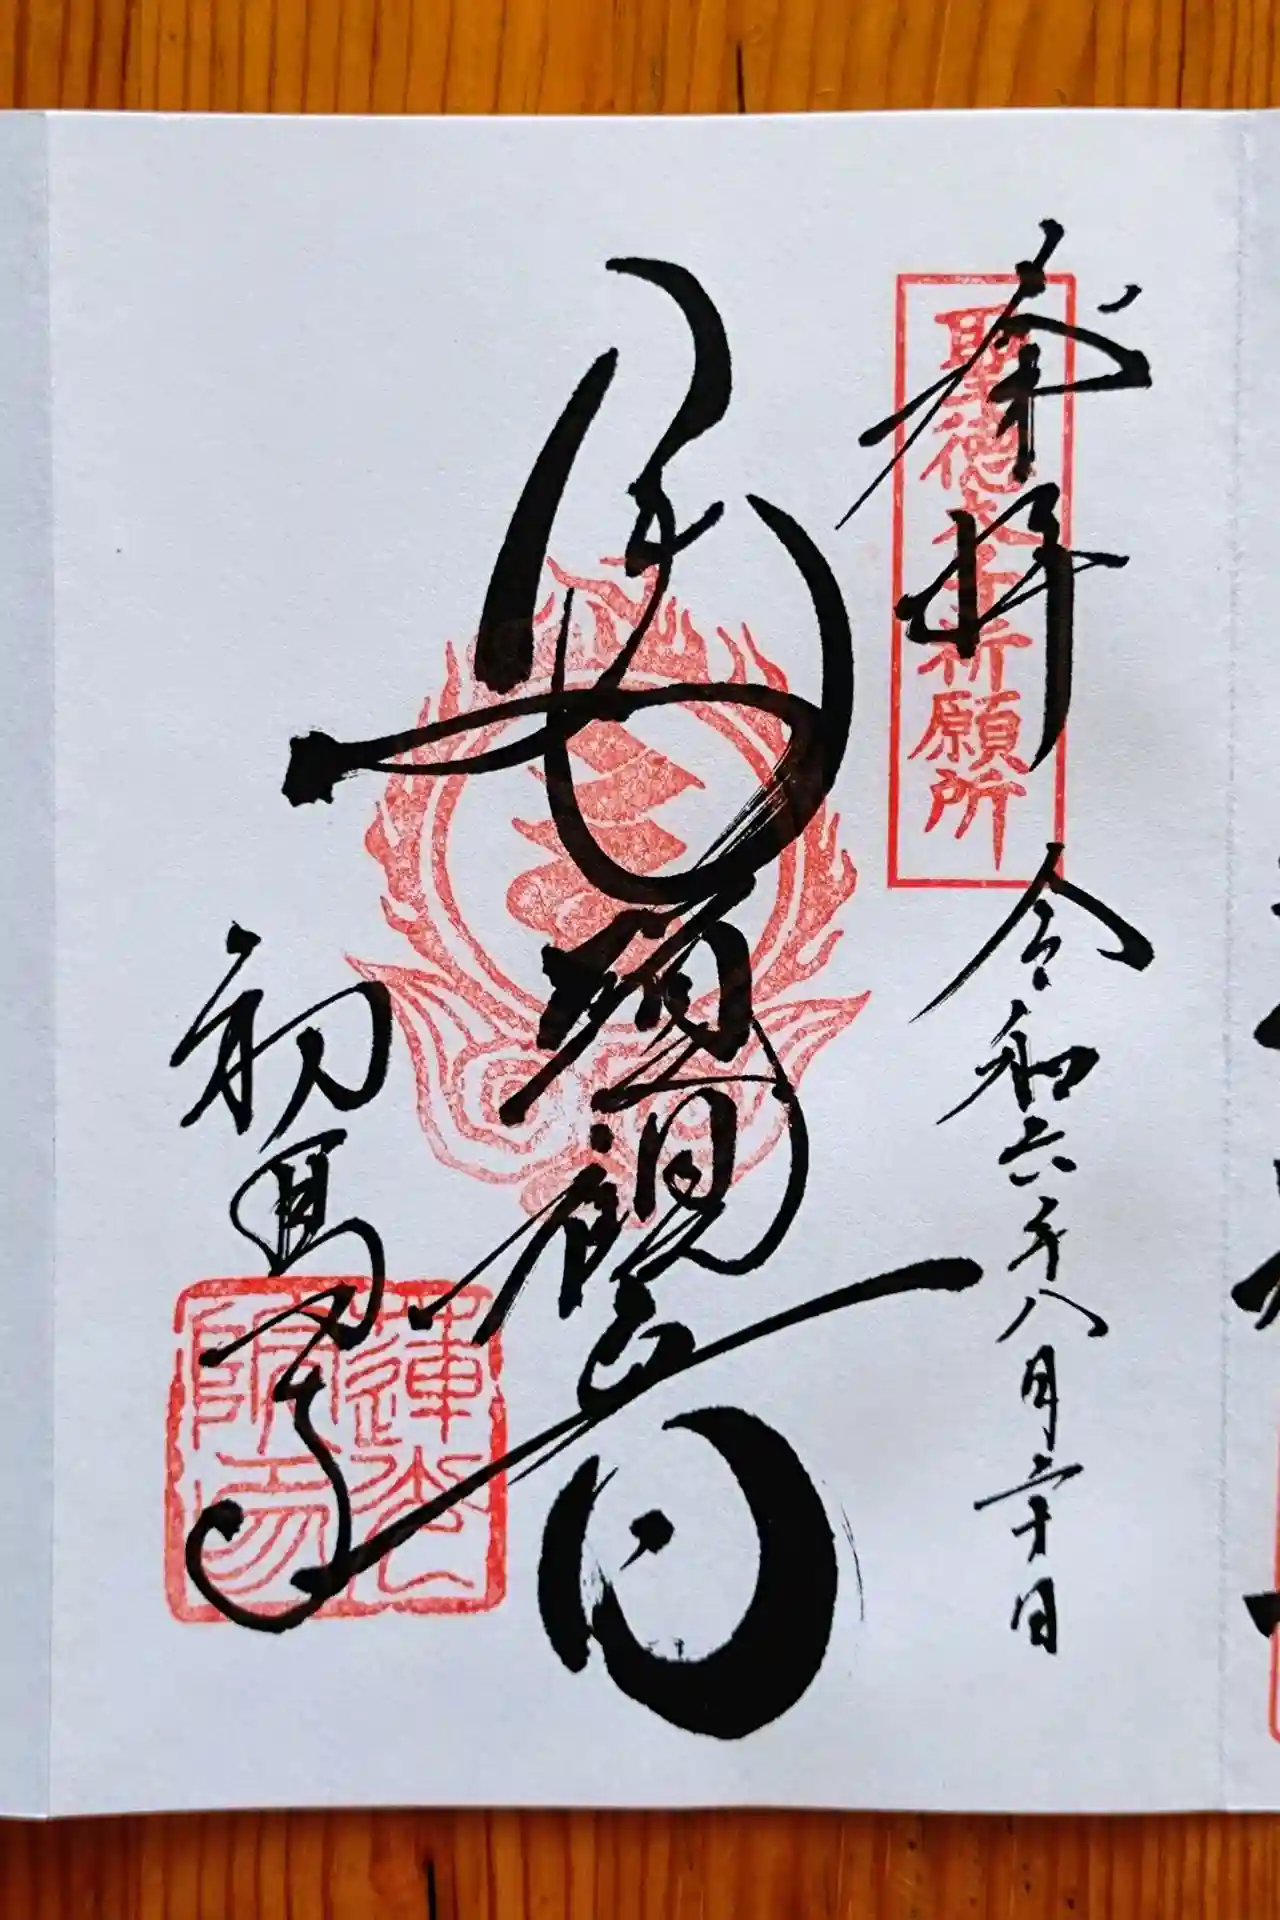 奉拝
聖徳太子祈願所
令和六年八月二十日
馬頭観音
初馬寺
蓮光院